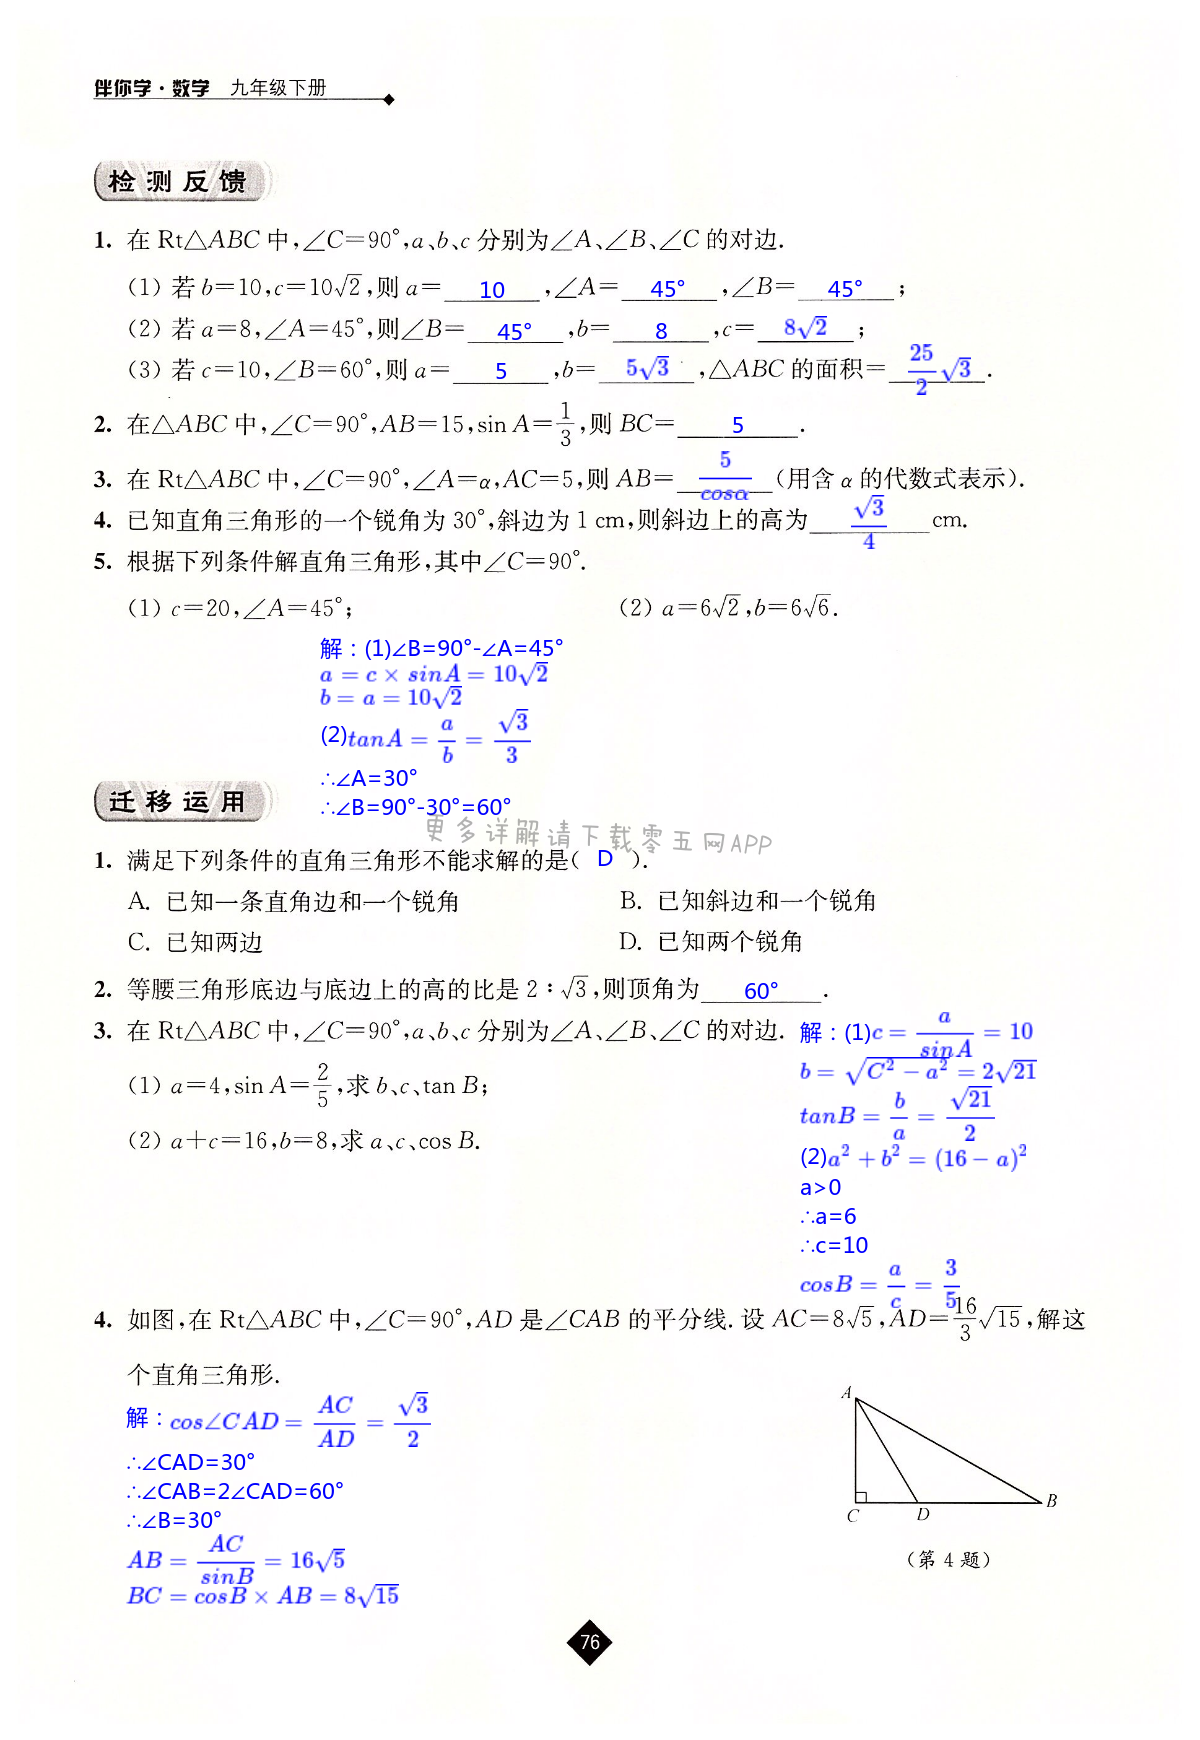 伴你学·数学 九年级下册
检测反馈
1. 在 Rt△ABC 中,∠C=90°,a、b、c 分别为∠A、∠B、∠C 的对边.
(1) 若 b=10,c=10√2,则 a= 10 ,∠A= 45° ,∠B= 45° ;
(2) 若 a=8,∠A=45°,则∠B= 45° ,b= 8 ,c= 8√2 ;
(3) 若 c=10,∠B=60°,则 a= 5 ,b= 5√3 ,△ABC 的面积= 25/2 √3 .
2. 在△ABC 中,∠C=90°,AB=15,sin A=1/3,则 BC= 5 .
3. 在 Rt△ABC 中,∠C=90°,∠A=α,AC=5,则 AB= 5/cosα (用含 α 的代数式表示).
4. 已知直角三角形的一个锐角为 30°,斜边为 1 cm,则斜边上的高为 √3/4 cm.
5. 根据下列条件解直角三角形,其中∠C=90°.
(1) c=20,∠A=45°; (2) a=6√2,b=6√6.
解：(1)∠B=90°-∠A=45°
a = c × sinA = 10√2
b = a = 10√2
(2)tanA = a/b = √3/3
∴∠A=30°
∴∠B=90°-30°=60°
迁移运用
更多详解请下载零五网APP
1. 满足下列条件的直角三角形不能求解的是( D ).
A. 已知一条直角边和一个锐角 B. 已知斜边和一个锐角
C. 已知两边 D. 已知两个锐角
2. 等腰三角形底边与底边上的高的比是 2∶√3,则顶角为 60° .
3. 在 Rt△ABC 中,∠C=90°,a、b、c 分别为∠A、∠B、∠C 的对边.
(1) a=4,sin A=2/5,求 b、c、tan B;
(2) a+c=16,b=8,求 a、c、cos B.
解：(1)c = a/sinA = 10
b = √(C² − a²) = 2√21
tanB = b/a = √21/2
(2)a² + b² = (16 − a)²
a>0
∴a=6
∴c=10
cosB = a/c = 3/5
4. 如图,在 Rt△ABC 中,∠C=90°,AD 是∠CAB 的平分线. 设 AC=8√5,AD=16/3 √15,解这
个直角三角形.
解：cos∠CAD = AC/AD = √3/2
∴∠CAD=30°
∴∠CAB=2∠CAD=60°
∴∠B=30°
AB = AC/sinB = 16√5
BC = cosB × AB = 8√15
A
B
C
D
(第 4 题)
76